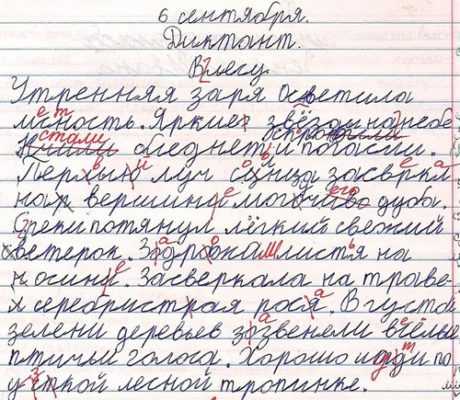 6 сентября.
Диктант.
Влесу.
Утренняя заря осветила
местность. Яркие звёзды нанебе
стали следнеть и погасли.
луч сонца засверкл
на вершине дуба.
Среки потянул лёгкий свежий
ветерок. листя на
осине. Засверкала на траве-
х серебристрая роса. В густой
зелени деревьев зазвенели
птичьи голоса. Хорошо идти по
уской лесной тропинке.